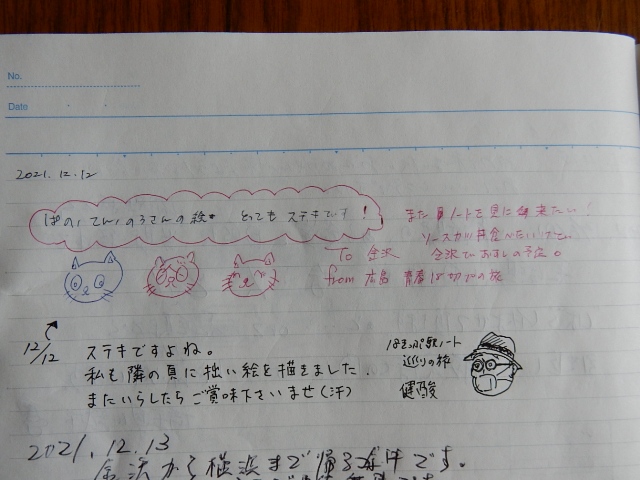 No.
Date
2021.12.12
ぱの/てん/のうさんの絵。 とっても ステキです!
また駅ノートを見に来たい!
ソースカツ丼食べたいけど。
To 金沢 金沢でおすしの予定。
from 広島 青春18切プの旅
12/12 ステキですよね。
私も隣の頁に拙い絵を描きました.
またいらしたらご賞味下さいませ(汗)
はるっぷ駅ノート
巡りの旅
健酸
2021.12.13
金沢から横浜まで帰る途中です。